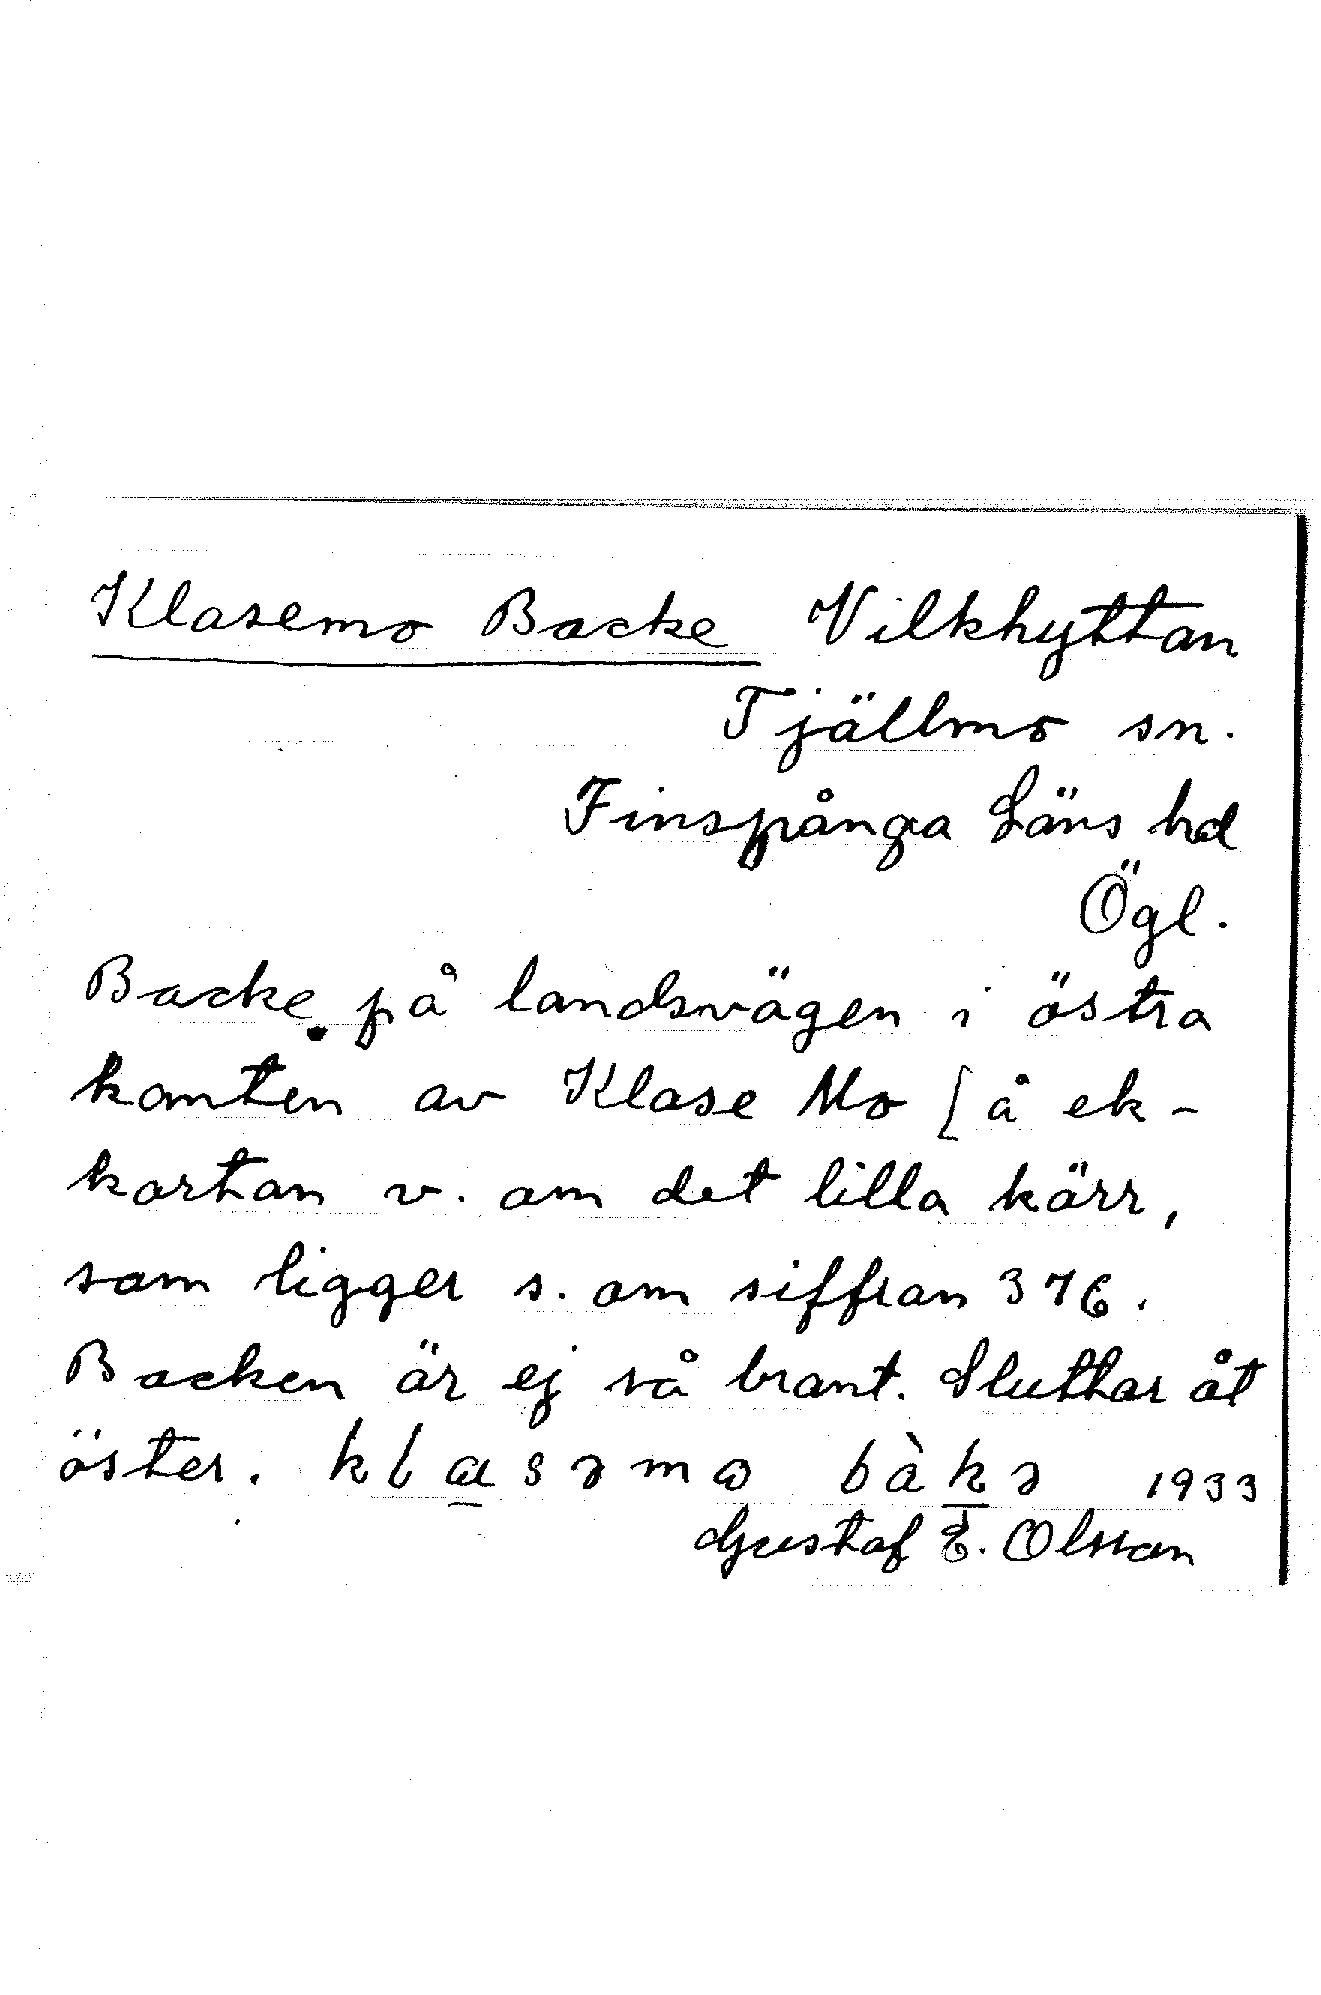 Klasemo Backe Vilkhyttan
Tjällmo sn.
Finspånga Läns hd
Ögl.
Backe på landsvägen i östra
kanten av Klase Mo [å ek-
kartan v. om det lilla kärr,
som ligger s. om siffran 376.
Backen är ej så brant. Sluttar åt
öster. klasəmo bàkə 1933
Gustaf E. Olsson